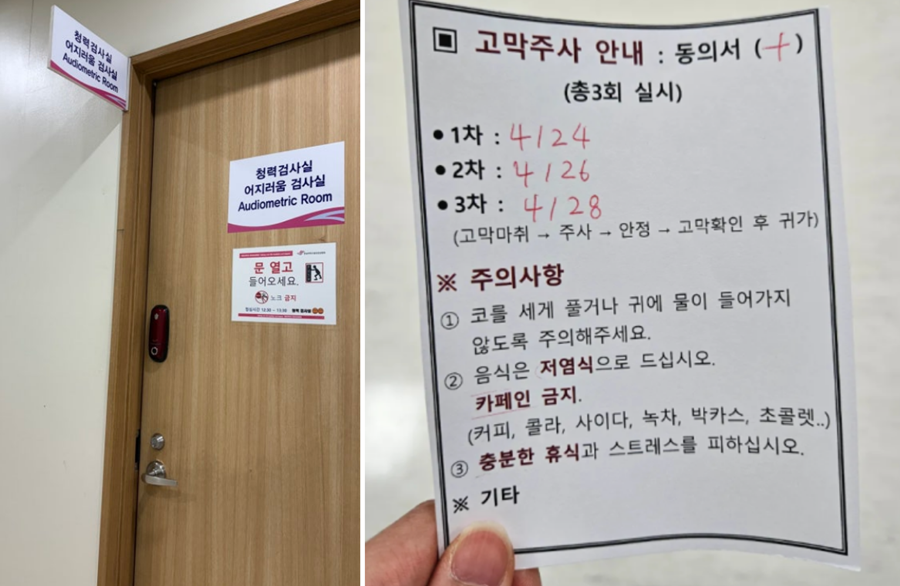 청력검사실
어지러움 검사실
Audiometric Room
청력검사실
어지러움 검사실
Audiometric Room
문 열고
들어오세요.
노크 금지
▣ 고막주사 안내 : 동의서 (+)
(총3회 실시)
• 1차 : 4/24
• 2차 : 4/26
• 3차 : 4/28
(고막마취 → 주사 → 안정 → 고막확인 후 귀가)
※ 주의사항
① 코를 세게 풀거나 귀에 물이 들어가지
않도록 주의해주세요.
② 음식은 저염식으로 드십시오.
카페인 금지.
(커피, 콜라, 사이다, 녹차, 박카스, 초콜렛..)
③ 충분한 휴식과 스트레스를 피하십시오.
※ 기타